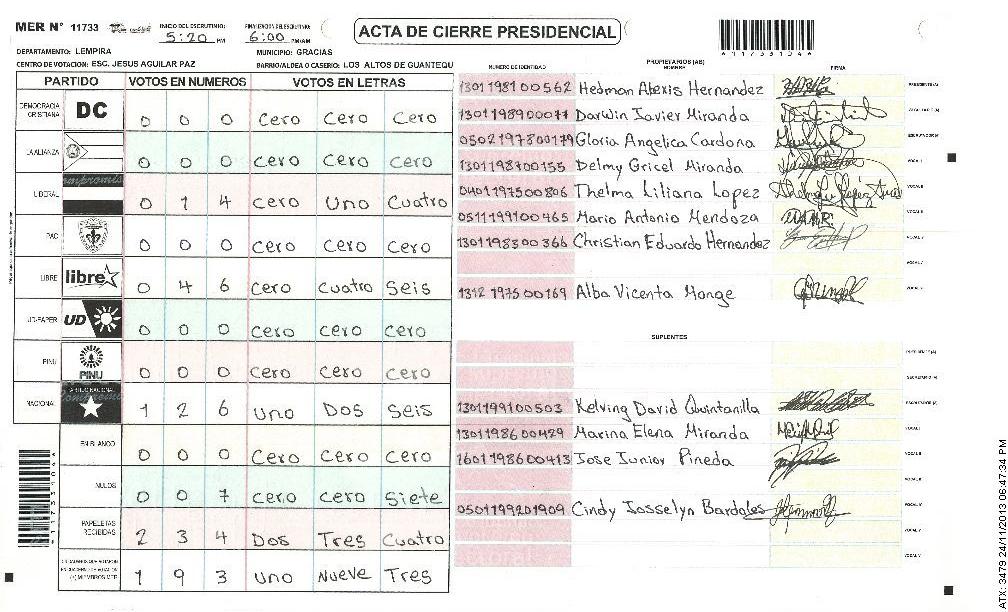 MER N° 11733
INICIO DEL ESCRUTINIO: 5:20 PM
FINALIZACION DEL ESCRUTINIO: 6:00 PM/AM
ACTA DE CIERRE PRESIDENCIAL
DEPARTAMENTO: LEMPIRA
MUNICIPIO: GRACIAS
CENTRO DE VOTACION: ESC. JESUS AGUILAR PAZ
BARRIO/ALDEA O CASERIO: LOS ALTOS DE GUANTEQU
PARTIDO VOTOS EN NUMEROS VOTOS EN LETRAS
DEMOCRACIA CRISTIANA DC 0 0 0 Cero Cero Cero
LA ALIANZA 0 0 0 Cero Cero Cero
LIBERAL 0 1 4 Cero Uno Cuatro
PAC 0 0 0 Cero Cero Cero
LIBRE libre 0 4 6 Cero Cuatro Seis
UD-FAPER UD 0 0 0 Cero Cero Cero
PINU PINU 0 0 0 Cero Cero Cero
NACIONAL 1 2 6 Uno Dos Seis
EN BLANCO 0 0 0 Cero Cero Cero
NULOS 0 0 7 Cero Cero Siete
PAPELETAS RECIBIDAS 2 3 4 Dos Tres Cuatro
CIUDADANOS QUE VOTARON EN CUADERNO DE VOTACION (+) MIEMBROS MER 1 9 3 Uno Nueve Tres
NUMERO DE IDENTIDAD PROPIETARIOS (AS) NOMBRE FIRMA
1301198100562 Hedman Alexis Hernandez PRESIDENTE (A)
1301198900077 Darwin Javier Miranda
0502197800179 Gloria Angelica Cardona ESCRUTADOR (A)
1301198700155 Delmy Gricel Miranda VOCAL I
0401197500806 Thelma Liliana Lopez
0511199100465 Mario Antonio Mendoza
1301198300366 Christian Eduardo Hernandez
1312197500169 Alba Vicenta Monge
SUPLENTES
1301199100503 Kelving David Quintanilla
1301198600429 Marina Elena Miranda
1601198600413 Jose Junior Pineda
0501199201909 Cindy Josselyn Bardales
1173310 4
ATX: 3479 24/11/2013 06:47:34 PM